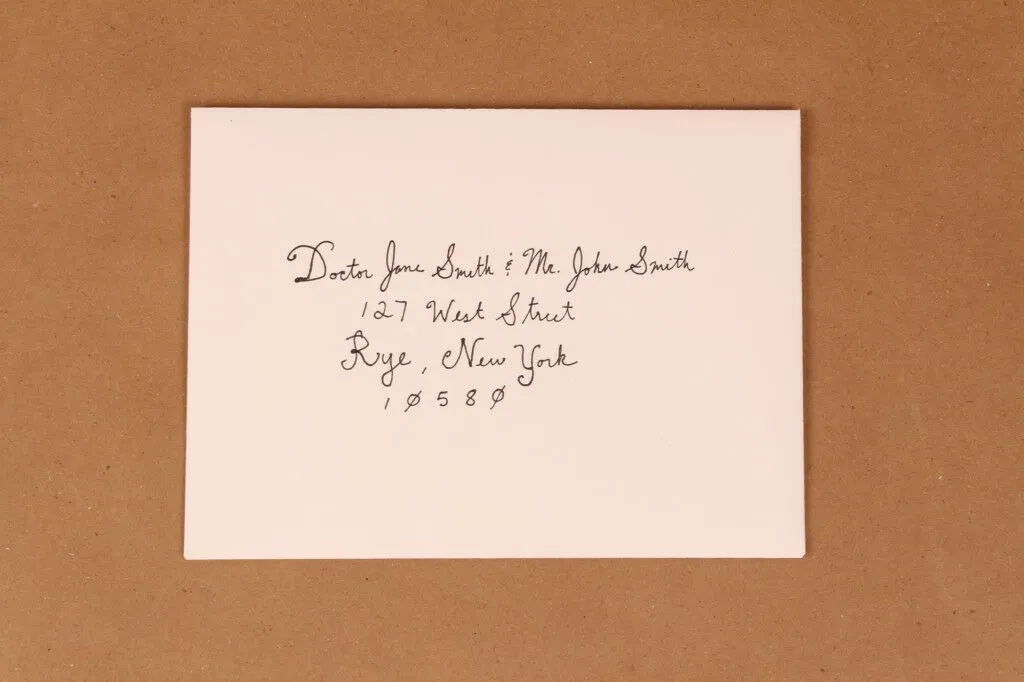 Doctor Jane Smith & Mr. John Smith
127 West Street
Rye, New York
10580